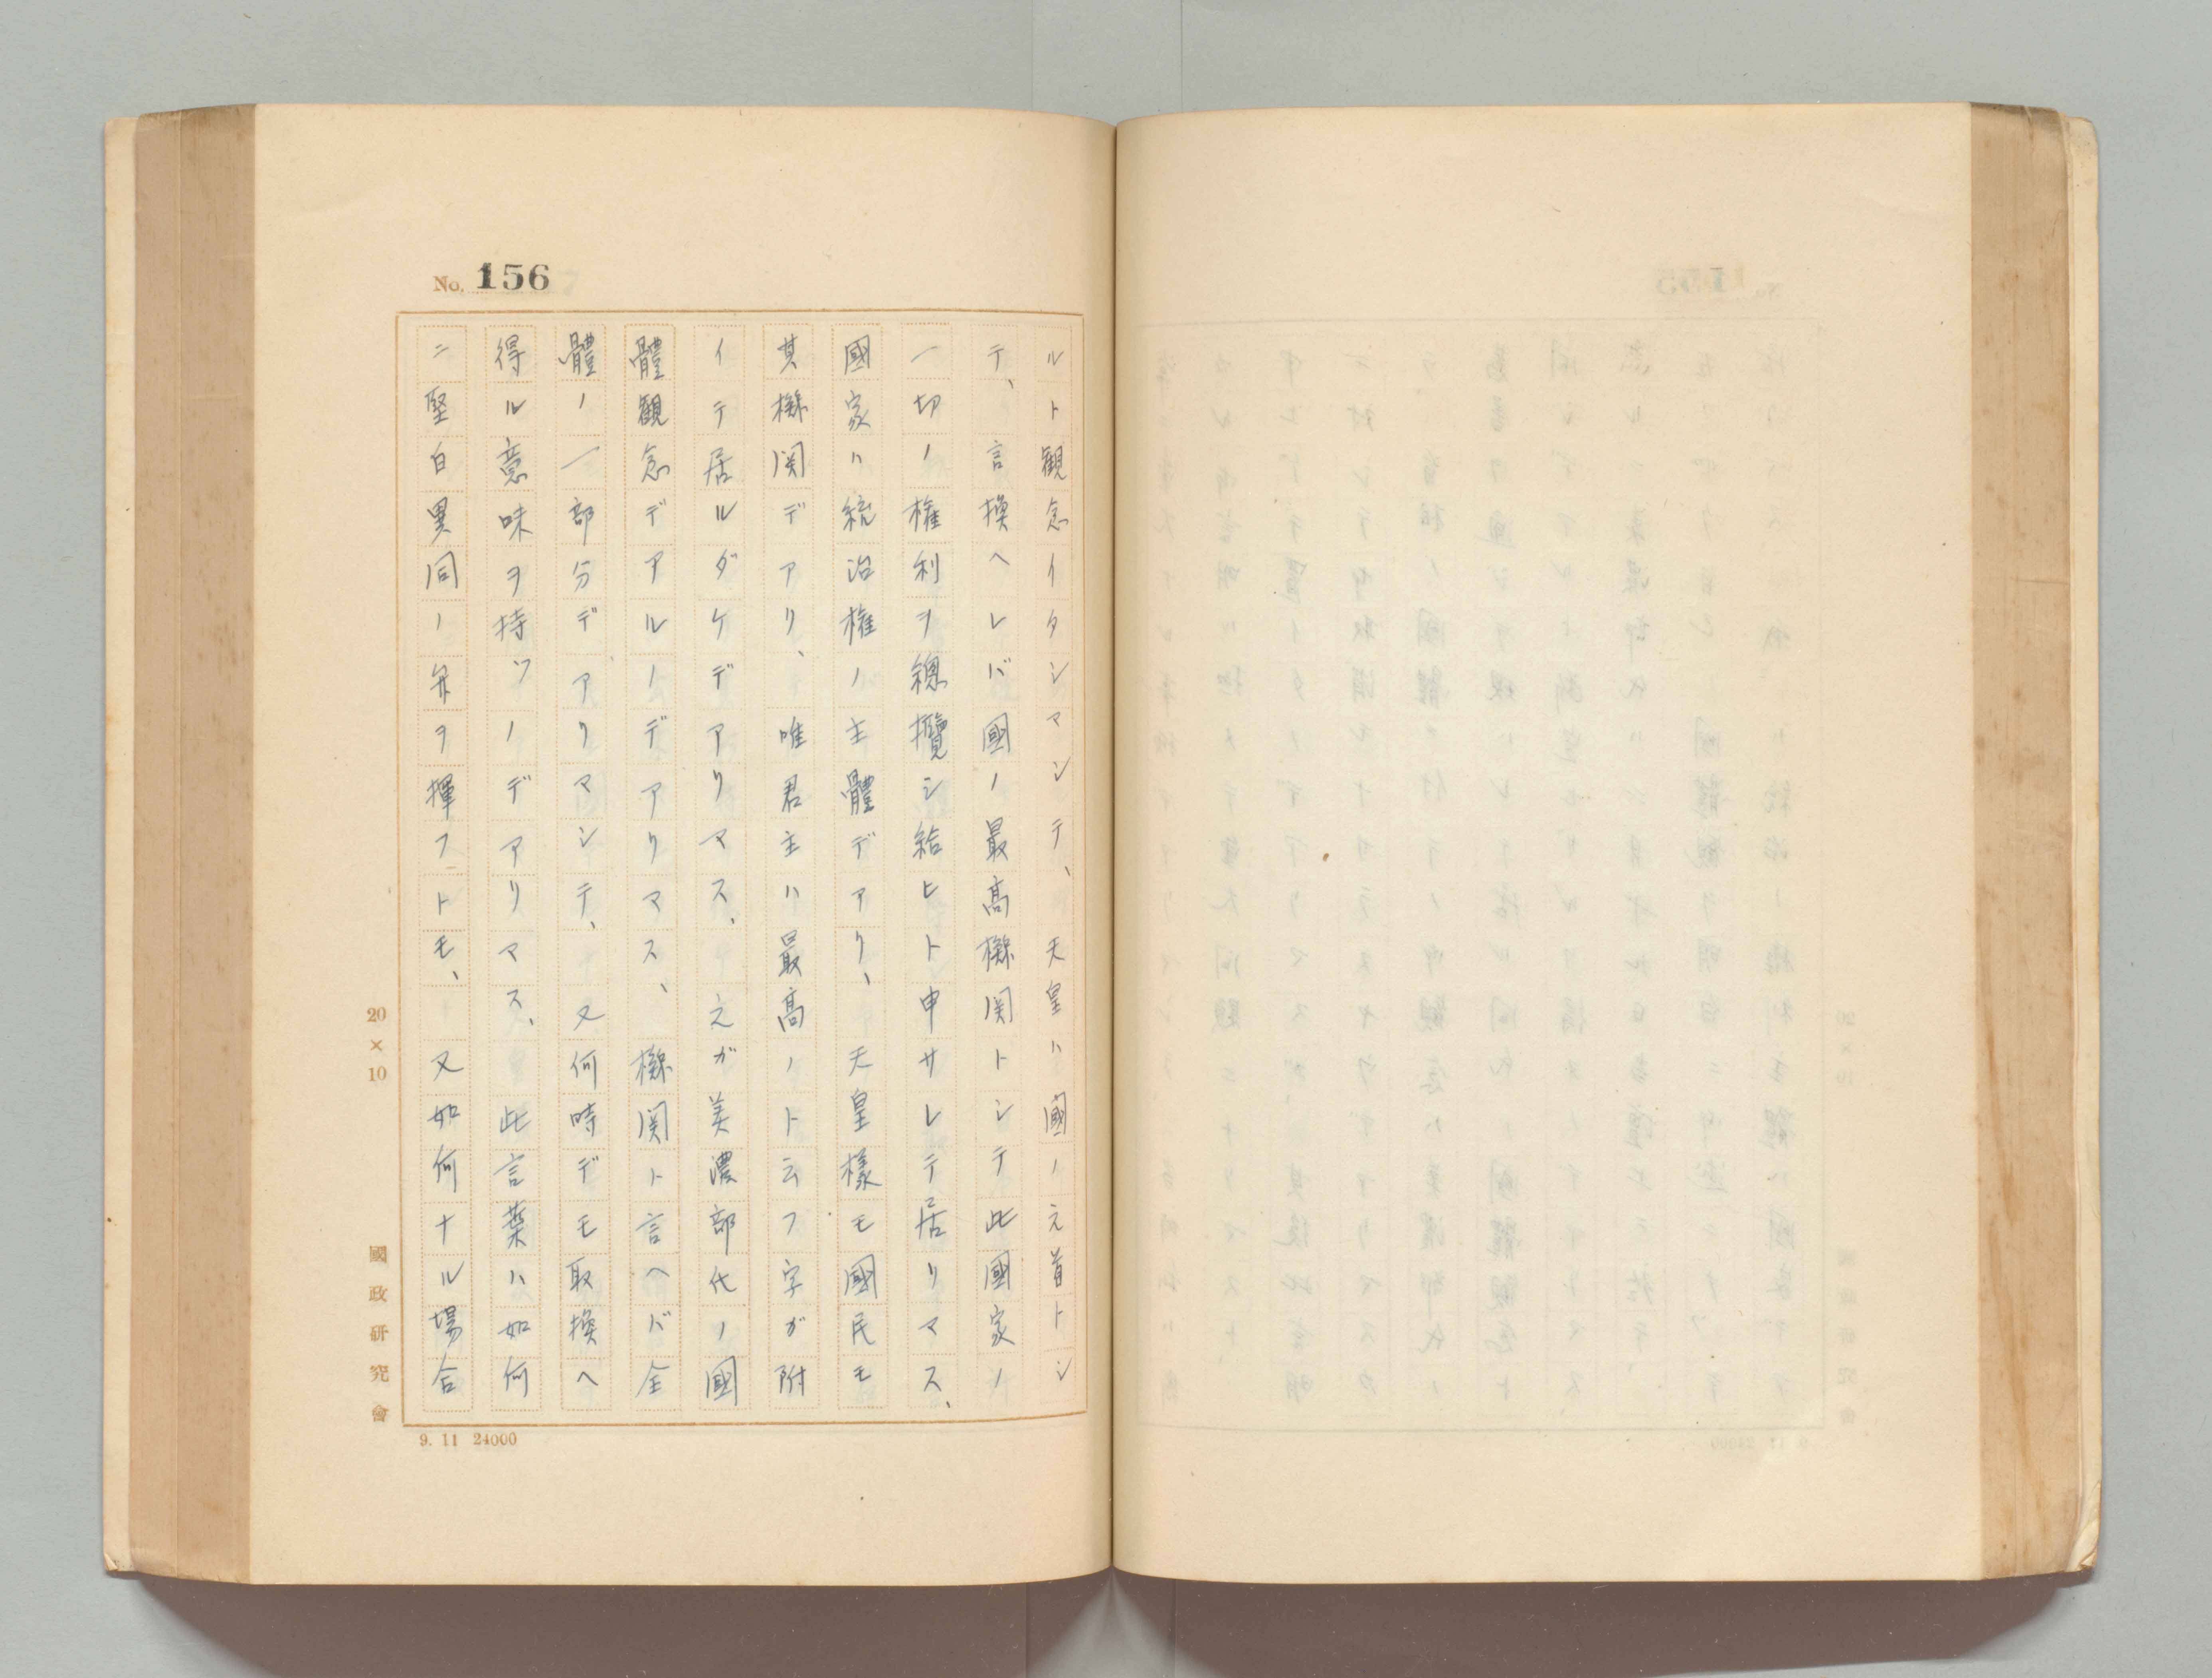 No. 156
ルト観念イタシマシテ、天皇ハ國ノ元首トシ
テ、言換ヘレバ國ノ最高機関トシテ此國家ノ
一切ノ権利ヲ總攬シ給ヒト申サレテ居リマス、
國家ハ統治権ノ主體デアリ、天皇様モ國民モ
其機関デアリ、唯君主ハ最高ノト云フ字ガ附
イテ居ルダケデアリマス、之ガ美濃部代ノ國
體観念デアルノデアリマス、機関ト言ヘバ全
體ノ一部分デアリマシテ、又何時デモ取換ヘ
得ル意味ヲ持ツノデアリマス、此言葉ハ如何
ニ堅白異同ノ弁ヲ揮フトモ、又如何ナル場合
20×10
國政研究會
9. 11 24000